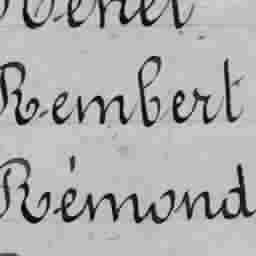 Rembert
Rémond